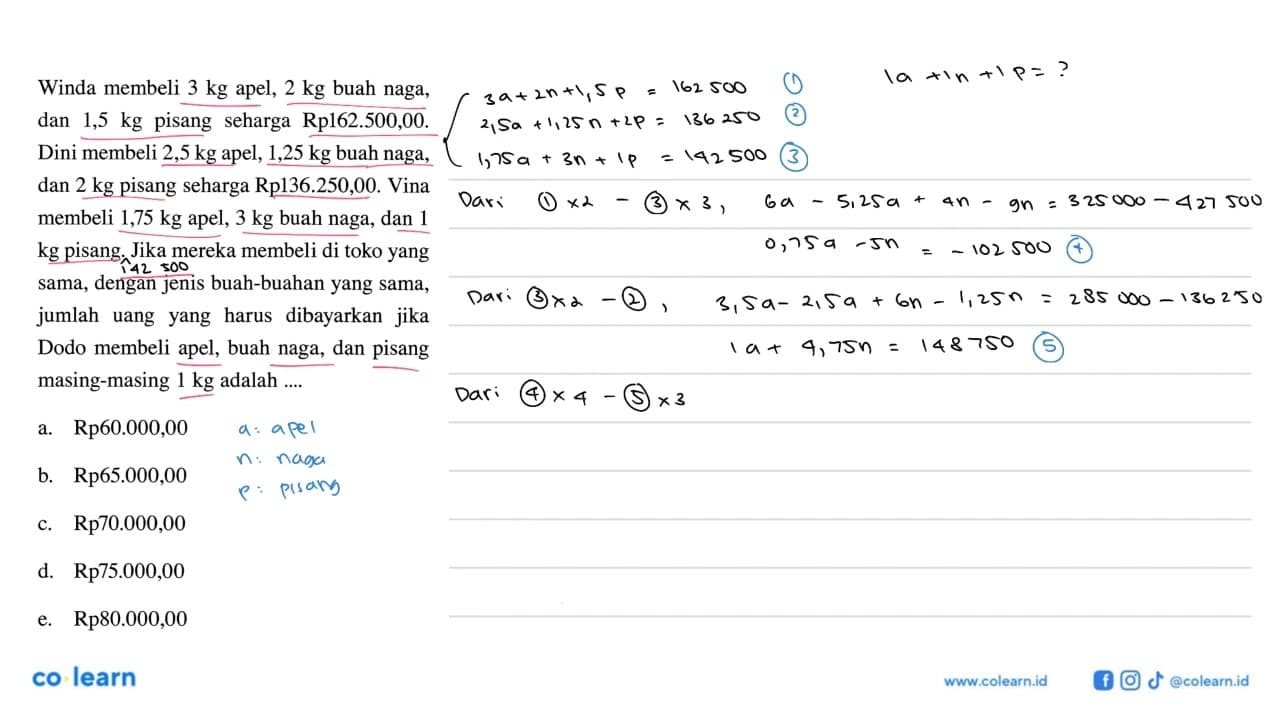 Winda membeli 3 kg apel, 2 kg buah naga,
dan 1,5 kg pisang seharga Rp162.500,00.
Dini membeli 2,5 kg apel, 1,25 kg buah naga,
dan 2 kg pisang seharga Rp136.250,00. Vina
membeli 1,75 kg apel, 3 kg buah naga, dan 1
kg pisang. Jika mereka membeli di toko yang
142 500
sama, dengan jenis buah-buahan yang sama,
jumlah uang yang harus dibayarkan jika
Dodo membeli apel, buah naga, dan pisang
masing-masing 1 kg adalah ....
a. Rp60.000,00
b. Rp65.000,00
c. Rp70.000,00
d. Rp75.000,00
e. Rp80.000,00
a: apel
n: naga
p: pisang
1a + 1n + 1p = ?
3a + 2n + 1,5p = 162 500 ①
2,5a + 1,25n + 2p = 136 250 ②
1,75a + 3n + 1p = 142 500 ③
Dari ① x2 - ③ x 3, 6a - 5,25a + 4n - 9n = 325 000 - 427 500
0,75a - 5n = - 102 500 ④
Dari ③ x2 - ②, 3,5a - 2,5a + 6n - 1,25n = 285 000 - 136 250
1a + 4,75n = 148 750 ⑤
Dari ④ x 4 - ⑤ x 3
co learn
www.colearn.id
@colearn.id